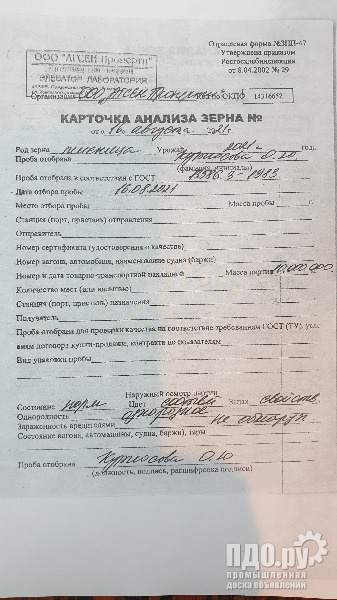 Отраслевая форма №ЗПП-47
Утверждена приказом
Росгосхлебинспекции
от 8.04.2002 № 29
ООО "АГСЕН Проперти"
ЭЛЕВАТОР ЛАБОРАТОРИЯ
Организация ООО „Агсен Проперти" по ОКПО 14316652
КАРТОЧКА АНАЛИЗА ЗЕРНА №
от «16» августа 2021г.
Род зерна пшеница Урожая 2021 г. год.
Проба отобрана Курносова О.Ю.
(фамилия, инициалы)
Проба отобрана в соответствии с ГОСТ 13586.3-1983
Дата отбора пробы 16.08.2021
Место отбора пробы Масса пробы г.
Станция (порт, пристань) отправления
Отправитель
Номер сертификата (удостоверения о качестве)
Номер вагона, автомобиля, наименование судна (баржи)
Номер и дата товарно-транспортной накладной Масса партии 10.000.000
Количество мест (или насыпью)
Станция (порт, пристань) назначения
Получатель
Проба отобрана для проверки качества на соответствие требованиям ГОСТ (ТУ), усло-
виям договора купли-продажи, контракта по показателям
Вид упаковки пробы
Наружный осмотр партии
Состояние норм Цвет светлый Запах свойств.
Однородность однородное
Зараженность вредителями не обнаруж.
Состояние вагона, автомашины, судна, баржи), тары
Проба отобрана Курносова О.Ю
(должность, подпись, расшифровка подписи)
ПДО.ру
промышленная
доска объявлений